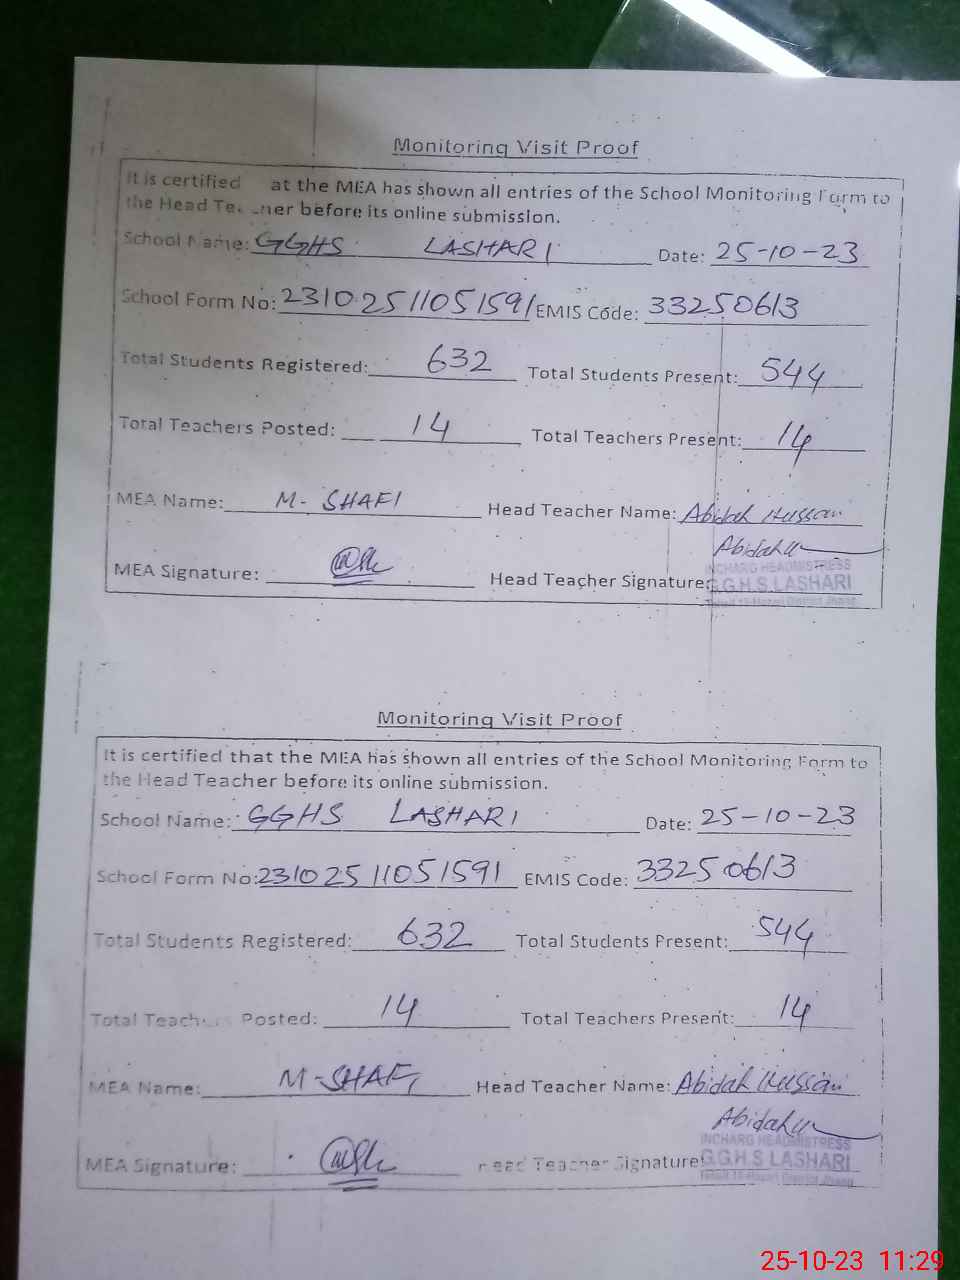 Monitoring Visit Proof
It is certified at the MEA has shown all entries of the School Monitoring Form to
the Head Te ner before its online submission.
School Name: GGHS LASHARI Date: 25-10-23
School Form No: 23102511051591 EMIS Code: 33250613
Total Students Registered: 632 Total Students Present: 544
Total Teachers Posted: 14 Total Teachers Present: 14
MEA Name: M-SHAFI Head Teacher Name: Abidah Hussain
Abidah
MEA Signature: Head Teacher Signature:
INCHARG HEADMISTRESS
G.G.H.S LASHARI
District Jhang
Monitoring Visit Proof
It is certified that the MEA has shown all entries of the School Monitoring Form to
the Head Teacher before its online submission.
School Name: GGHS LASHARI Date: 25-10-23
School Form No: 23102511051591 EMIS Code: 33250613
Total Students Registered: 632 Total Students Present: 544
Total Teachers Posted: 14 Total Teachers Present: 14
MEA Name: M-SHAFI Head Teacher Name: Abidah Hussain
Abidah
MEA Signature: Head Teacher Signature
INCHARG HEADMISTRESS
G.G.H.S LASHARI
District Jhang
25-10-23 11:29